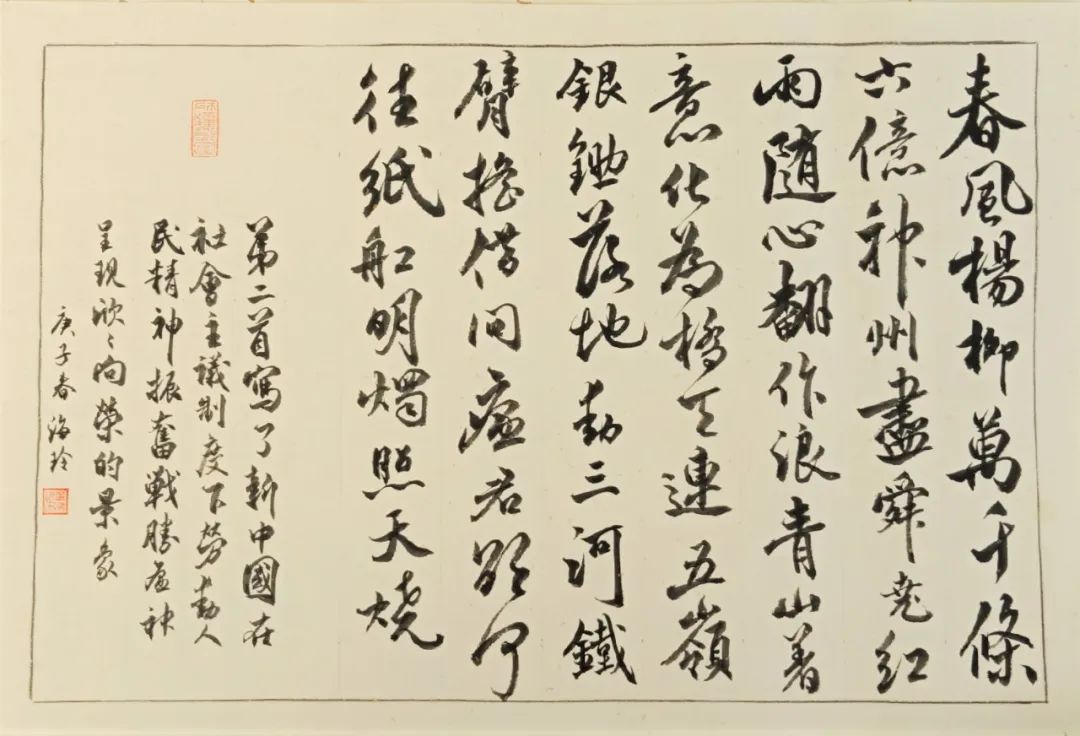 春風楊柳萬千條
六億神州盡舜堯紅
雨隨心翻作浪青山着
意化為橋天連五嶺
銀鋤落地動三河鐵
臂搖借問瘟君欲何
往紙船明燭照天燒
第二首寫了新中國在
社會主議制度下勞動人
民精神振奮戰勝瘟神
呈現欣〻向榮的景象
庚子春海玲